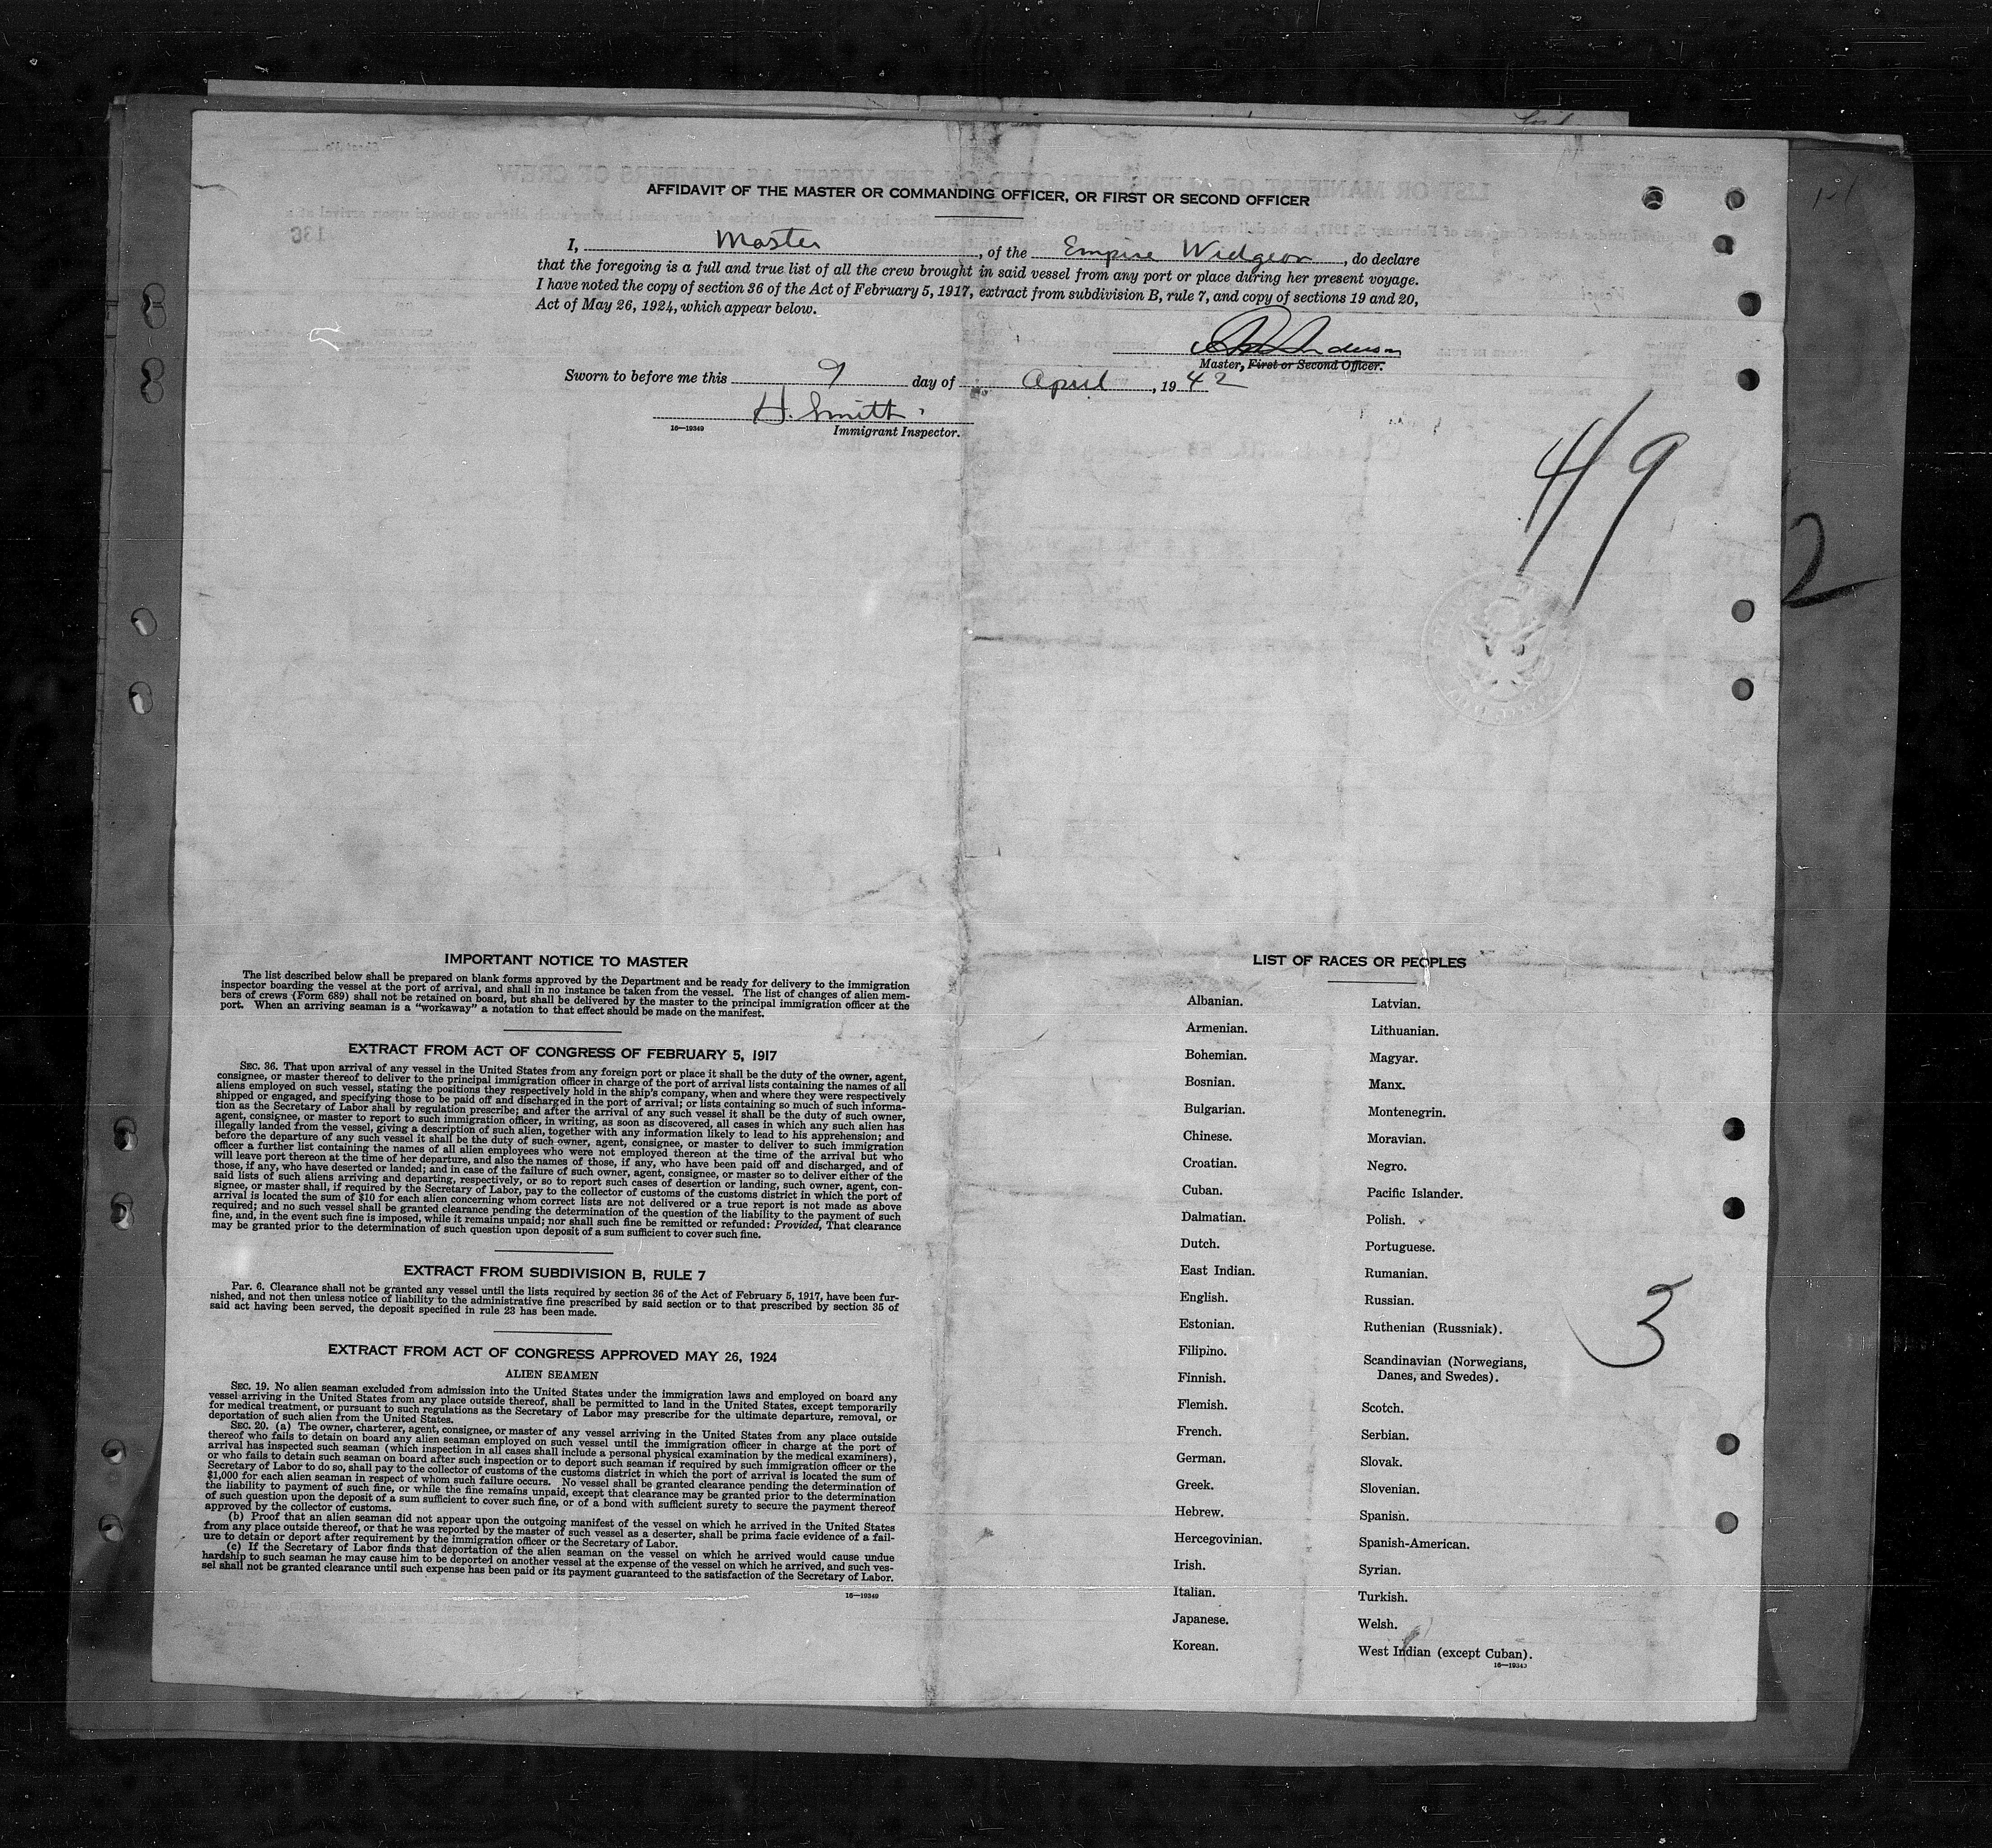 AFFIDAVIT OF THE MASTER OR COMMANDING OFFICER, OR FIRST OR SECOND OFFICER
I, Master, of the Empire Widgeon, do declare
that the foregoing is a full and true list of all the crew brought in said vessel from any port or place during her present voyage.
I have noted the copy of section 36 of the Act of February 5, 1917, extract from subdivision B, rule 7, and copy of sections 19 and 20,
Act of May 26, 1924, which appear below.
Anderson
Master, First or Second Officer.
Sworn to before me this 9 day of April, 1942
H. Smith
16—19349 Immigrant Inspector.
4/9
2
IMPORTANT NOTICE TO MASTER
The list described below shall be prepared on blank forms approved by the Department and be ready for delivery to the immigration
inspector boarding the vessel at the port of arrival, and shall in no instance be taken from the vessel. The list of changes of alien mem-
bers of crews (Form 689) shall not be retained on board, but shall be delivered by the master to the principal immigration officer at the
port. When an arriving seaman is a "workaway" a notation to that effect should be made on the manifest.
EXTRACT FROM ACT OF CONGRESS OF FEBRUARY 5, 1917
SEC. 36. That upon arrival of any vessel in the United States from any foreign port or place it shall be the duty of the owner, agent,
consignee, or master thereof to deliver to the principal immigration officer in charge of the port of arrival lists containing the names of all
aliens employed on such vessel, stating the positions they respectively hold in the ship's company, when and where they were respectively
shipped or engaged, and specifying those to be paid off and discharged in the port of arrival; or lists containing so much of such informa-
tion as the Secretary of Labor shall by regulation prescribe; and after the arrival of any such vessel it shall be the duty of such owner,
agent, consignee, or master to report to such immigration officer, in writing, as soon as discovered, all cases in which any such alien has
illegally landed from the vessel, giving a description of such alien, together with any information likely to lead to his apprehension; and
before the departure of any such vessel it shall be the duty of such owner, agent, consignee, or master to deliver to such immigration
officer a further list containing the names of all alien employees who were not employed thereon at the time of the arrival but who
will leave port thereon at the time of her departure, and also the names of those, if any, who have been paid off and discharged, and of
those, if any, who have deserted or landed; and in case of the failure of such owner, agent, consignee, or master so to deliver either of the
said lists of such aliens arriving and departing, respectively, or so to report such cases of desertion or landing, such owner, agent, con-
signee, or master shall, if required by the Secretary of Labor, pay to the collector of customs of the customs district in which the port of
arrival is located the sum of $10 for each alien concerning whom correct lists are not delivered or a true report is not made as above
required; and no such vessel shall be granted clearance pending the determination of the question of the liability to the payment of such
fine, and, in the event such fine is imposed, while it remains unpaid; nor shall such fine be remitted or refunded: Provided, That clearance
may be granted prior to the determination of such question upon deposit of a sum sufficient to cover such fine.
EXTRACT FROM SUBDIVISION B, RULE 7
Par. 6. Clearance shall not be granted any vessel until the lists required by section 36 of the Act of February 5, 1917, have been fur-
nished, and not then unless notice of liability to the administrative fine prescribed by said section or to that prescribed by section 35 of
said act having been served, the deposit specified in rule 23 has been made.
EXTRACT FROM ACT OF CONGRESS APPROVED MAY 26, 1924
ALIEN SEAMEN
SEC. 19. No alien seaman excluded from admission into the United States under the immigration laws and employed on board any
vessel arriving in the United States from any place outside thereof, shall be permitted to land in the United States, except temporarily
for medical treatment, or pursuant to such regulations as the Secretary of Labor may prescribe for the ultimate departure, removal, or
deportation of such alien from the United States.
SEC. 20. (a) The owner, charterer, agent, consignee, or master of any vessel arriving in the United States from any place outside
thereof who fails to detain on board any alien seaman employed on such vessel until the immigration officer in charge at the port of
arrival has inspected such seaman (which inspection in all cases shall include a personal physical examination by the medical examiners),
or who fails to detain such seaman on board after such inspection or to deport such seaman if required by such immigration officer or the
Secretary of Labor to do so, shall pay to the collector of customs of the customs district in which the port of arrival is located the sum of
$1,000 for each alien seaman in respect of whom such failure occurs. No vessel shall be granted clearance pending the determination of
the liability to payment of such fine, or while the fine remains unpaid, except that clearance may be granted prior to the determination
of such question upon the deposit of a sum sufficient to cover such fine, or of a bond with sufficient surety to secure the payment thereof
approved by the collector of customs.
(b) Proof that an alien seaman did not appear upon the outgoing manifest of the vessel on which he arrived in the United States
from any place outside thereof, or that he was reported by the master of such vessel as a deserter, shall be prima facie evidence of a fail-
ure to detain or deport after requirement by the immigration officer or the Secretary of Labor.
(c) If the Secretary of Labor finds that deportation of the alien seaman on the vessel on which he arrived would cause undue
hardship to such seaman he may cause him to be deported on another vessel at the expense of the vessel on which he arrived, and such ves-
sel shall not be granted clearance until such expense has been paid or its payment guaranteed to the satisfaction of the Secretary of Labor.
16—19349
LIST OF RACES OR PEOPLES
Albanian.
Armenian.
Bohemian.
Bosnian.
Bulgarian.
Chinese.
Croatian.
Cuban.
Dalmatian.
Dutch.
East Indian.
English.
Estonian.
Filipino.
Finnish.
Flemish.
French.
German.
Greek.
Hebrew.
Hercegovinian.
Irish.
Italian.
Japanese.
Korean.
Latvian.
Lithuanian.
Magyar.
Manx.
Montenegrin.
Moravian.
Negro.
Pacific Islander.
Polish.
Portuguese.
Rumanian.
Russian.
Ruthenian (Russniak).
Scandinavian (Norwegians,
Danes, and Swedes).
Scotch.
Serbian.
Slovak.
Slovenian.
Spanish.
Spanish-American.
Syrian.
Turkish.
Welsh.
West Indian (except Cuban).
16—19349
3